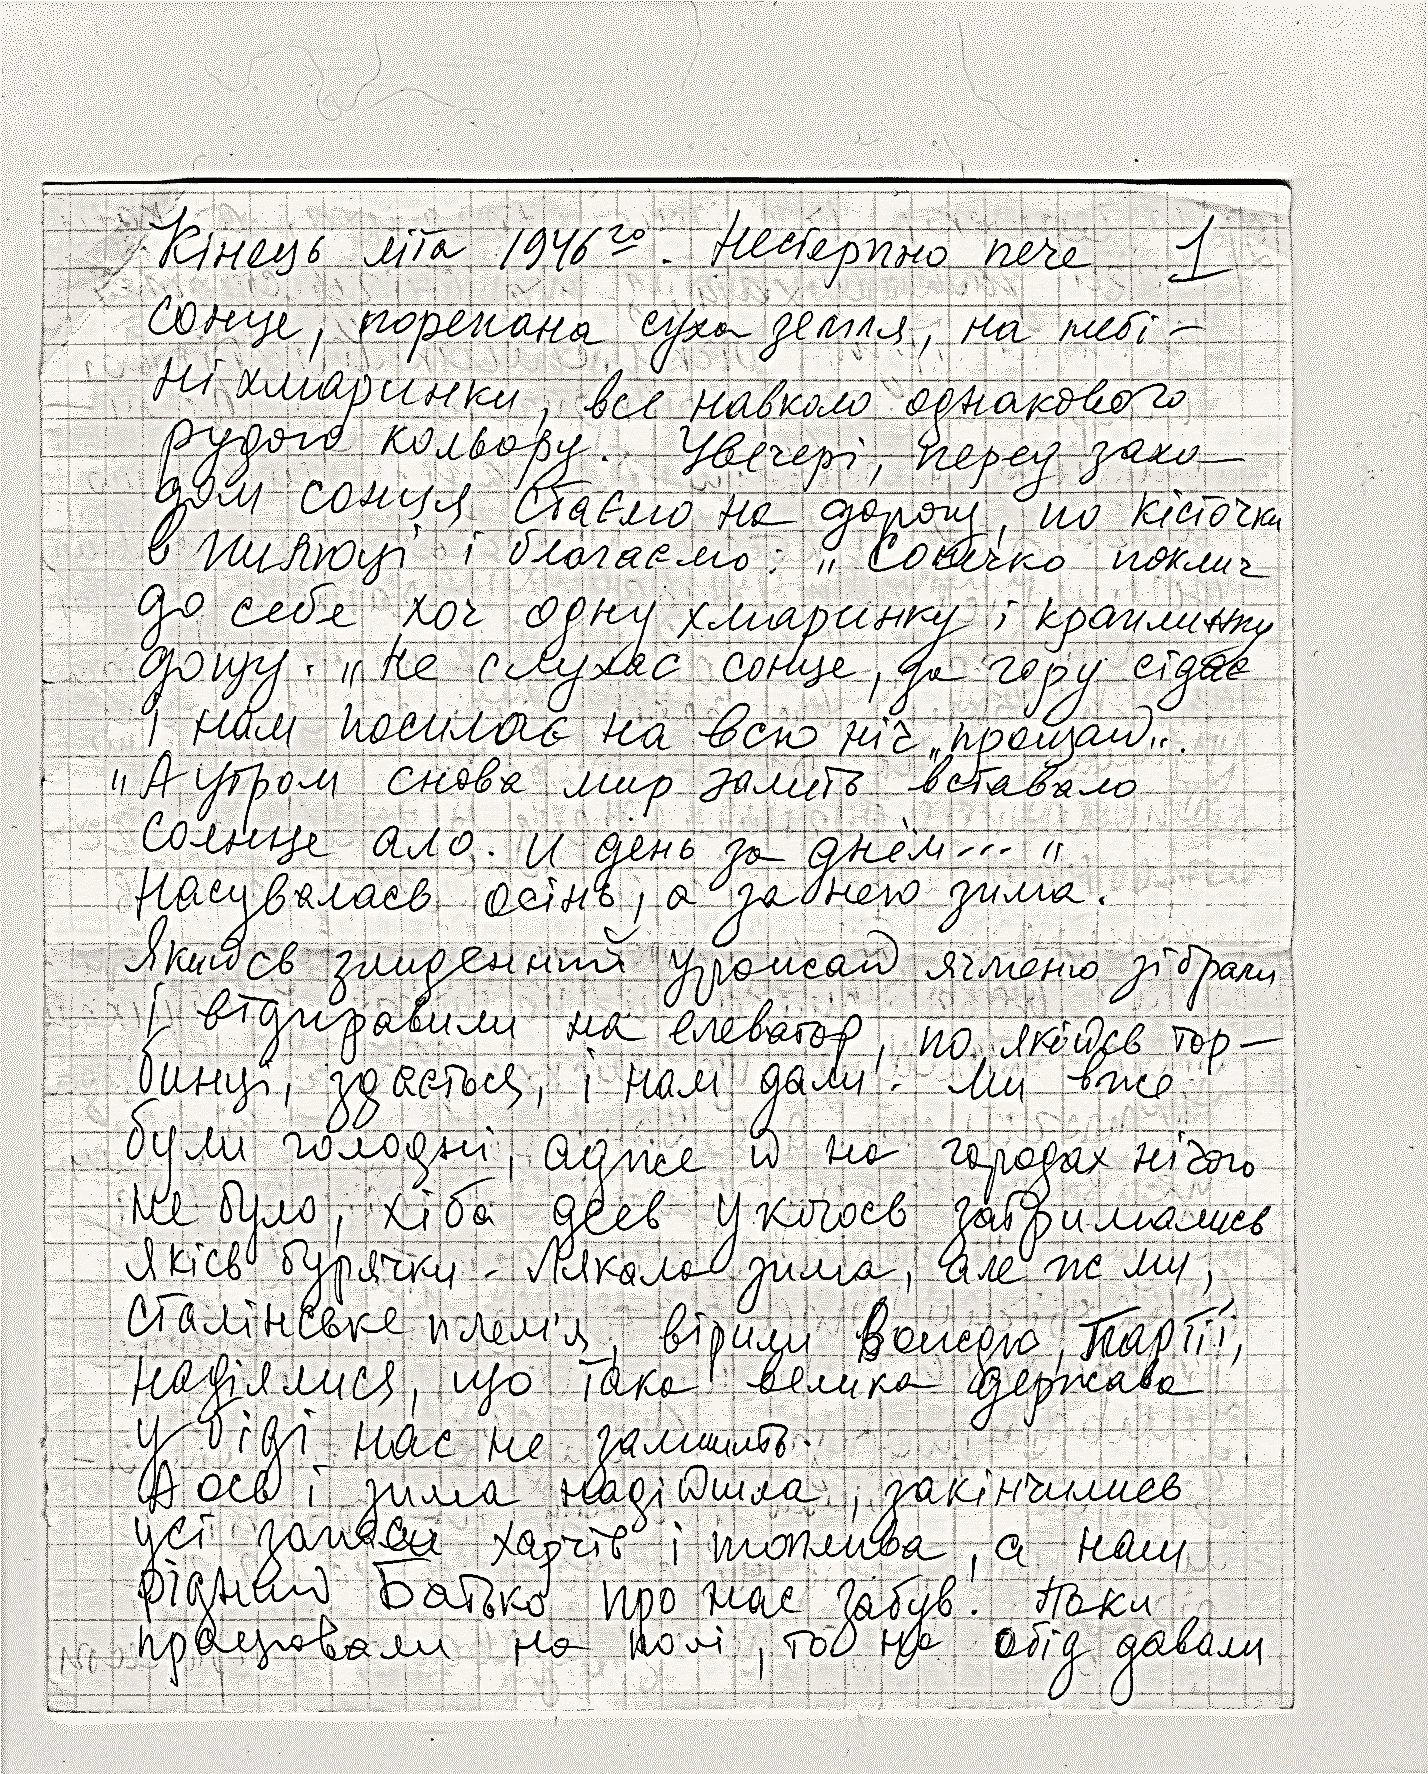 Кінець літа 1946го. Нестерпно пече 1
сонце, порепана суха земля, на небі –
ні хмаринки, все навколо однакового
рудого кольору. Увечері, перед захо–
дом сонця стаємо на дорощ, по кісточки
в пилюці і благаємо: „Сонечко поклич
до себе хоч одну хмаринку і краплинку
дощу." Не слухає сонце, за гору сідає
і нам посилає на всю ніч „прощай".
"А утром снова мир залить вставало
солнце ало. И день за днём..."
Насувалась осінь, а за нею зима.
Якийсь злиденний урожай ячменю зібрали
і відправили на елеватор, по якійсь тор–
бинці, здається, і нам дали. Ми вже
були голодні, адже й на городах нічого
не було, хіба десь у когось затримались
якісь бурячки. Лякала зима, але ж ми,
сталінське плем'я, вірили Вождю, Партії,
надіялися, що така велика держава
у біді нас не залишить.
А ось і зима надійшла, закінчились
усі запаси харчів і топлива, а наш
рідний Батько про нас забув. Поки
працювали на полі, то на обід давали